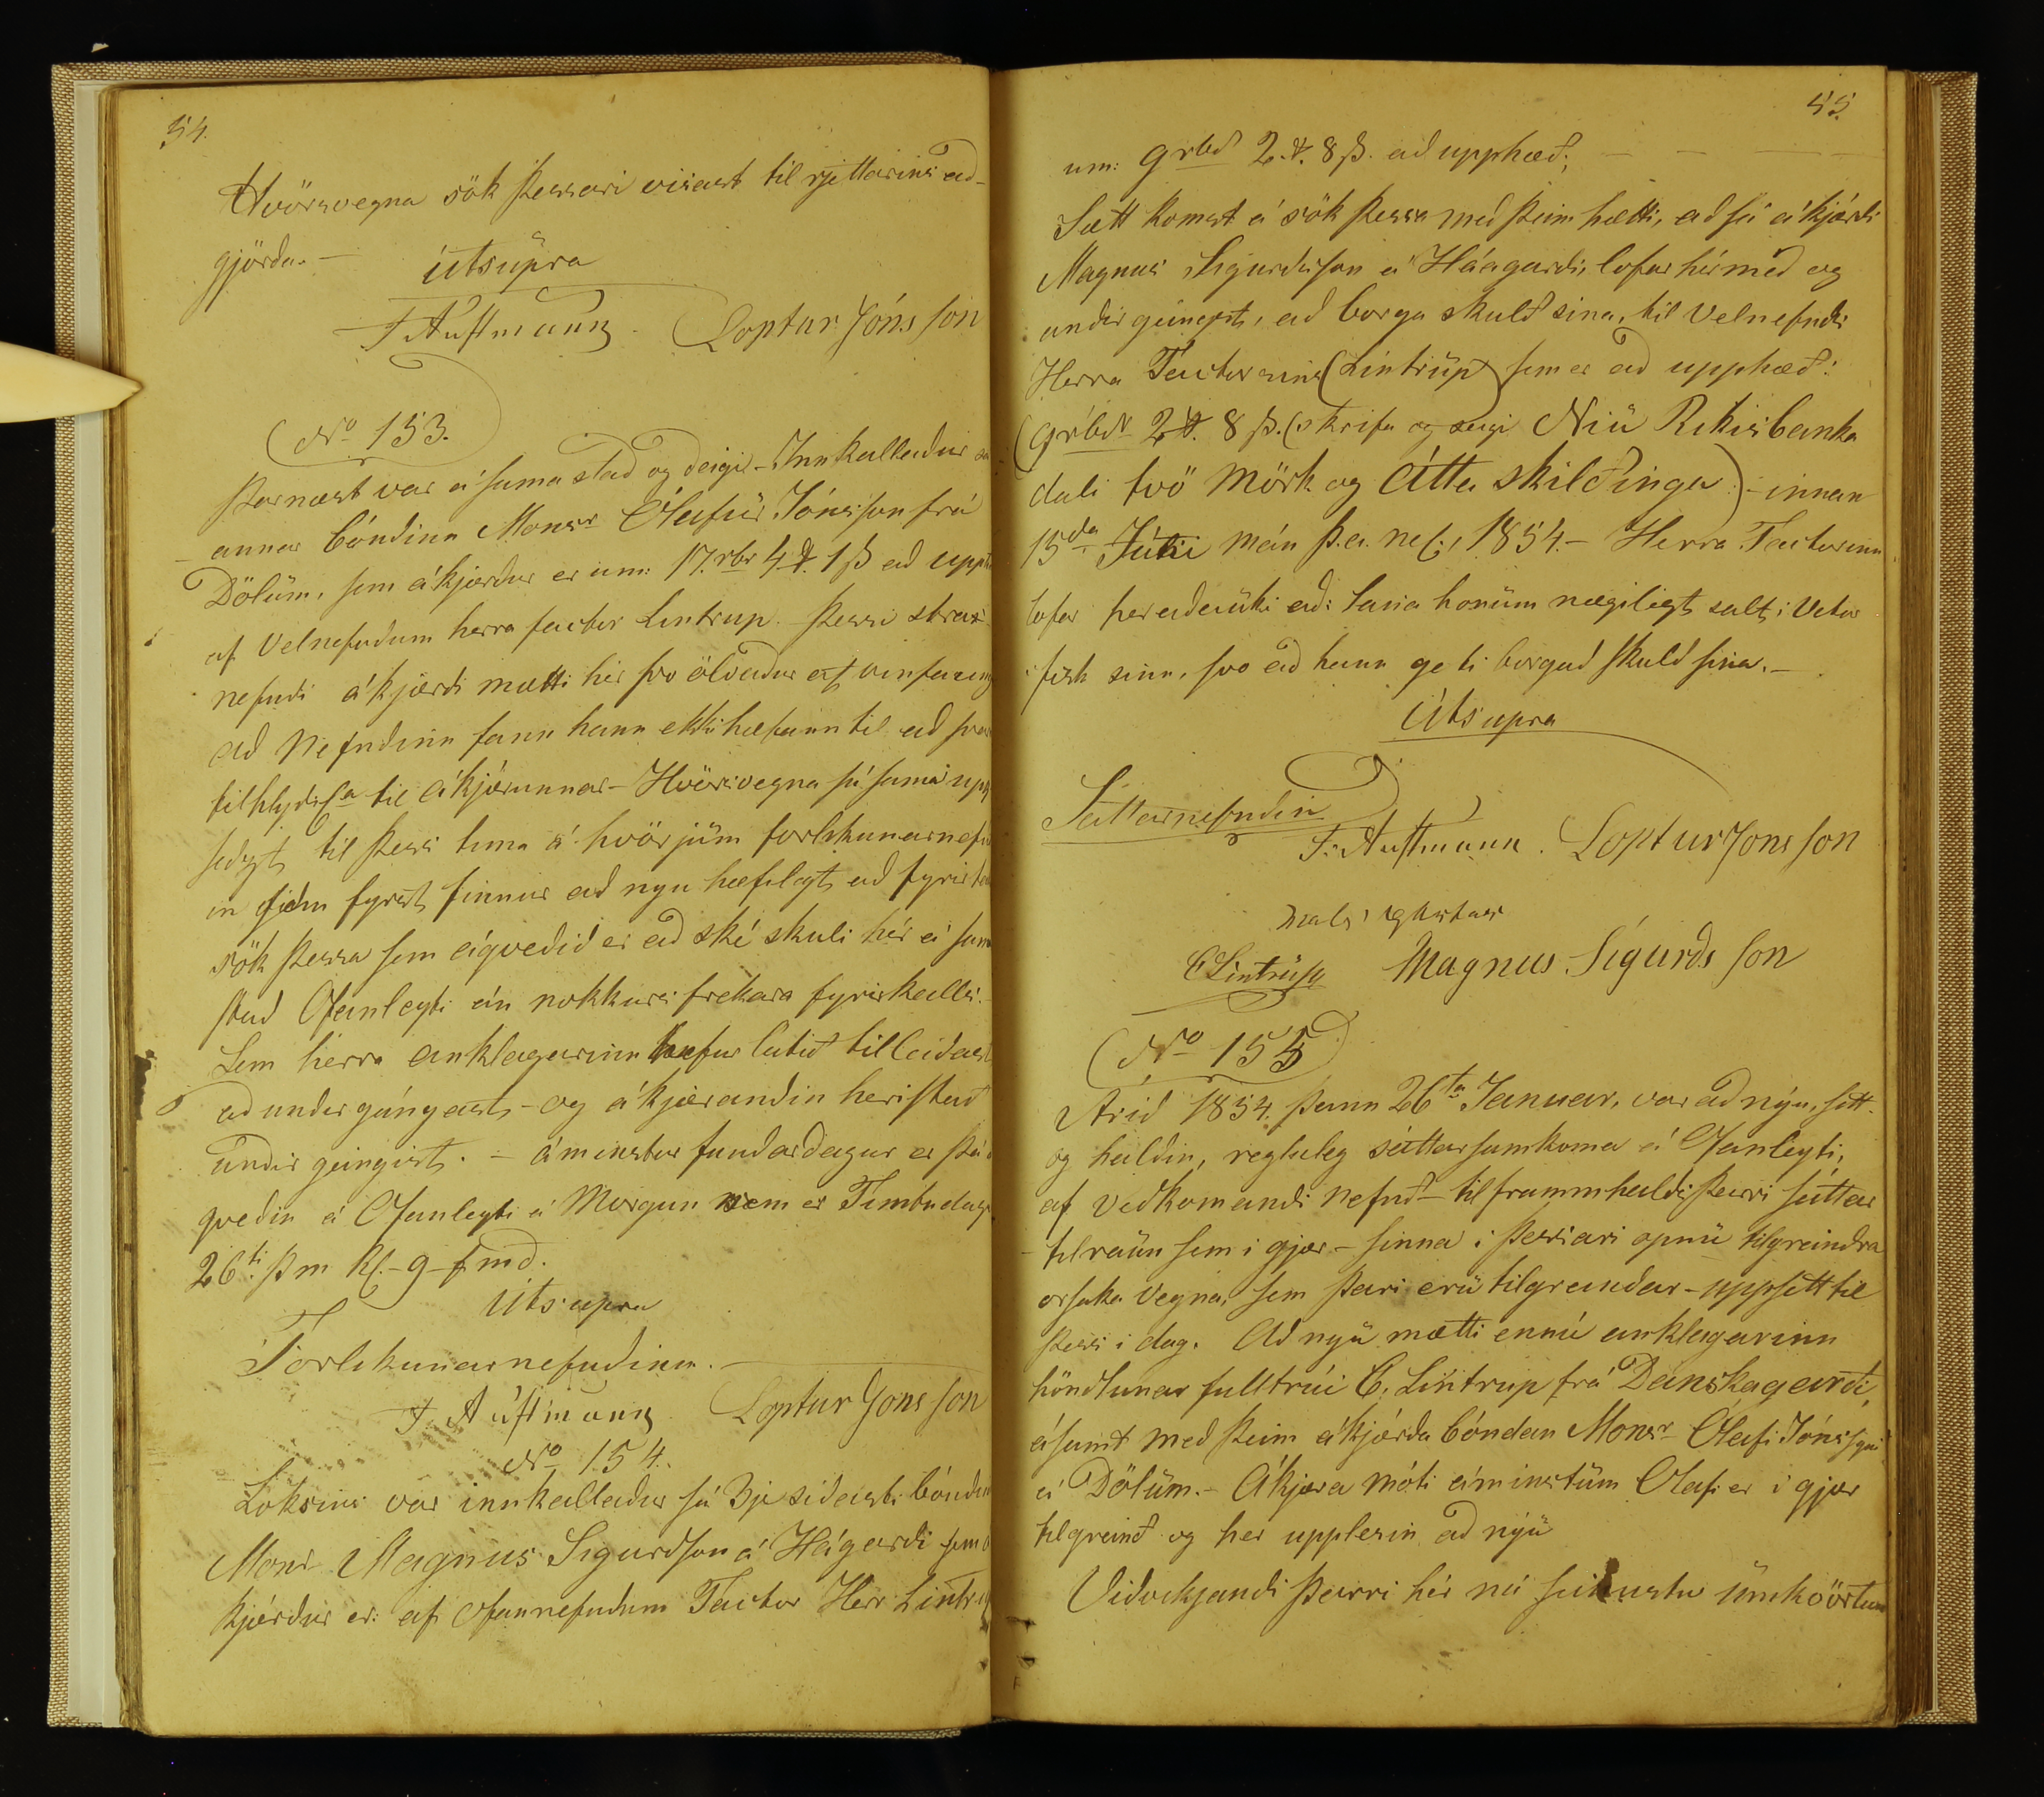 54.
Hvörsvegna sök þessari visast til rjettarins að-
gjörða. —
útsüpra
J Austmann. Loptur Jónsson
No 153.
Þarnæst var á sama stað og deigi - Innkallaður
annar bóndinn Monsr Ólafur Jónsson frá
Dölüm, sem ákjærður er um: 17. rbr 4 # 1 ß að upp
af Velnefndum herra factor Lintrup. Þessi
nefndi ákjærdi mætti hér svo ölvaður af
að Nefndinn fann hann ekki hæfann til að
til ákjærunnar - Hvörsvegna sú sama
til þess tima á hvörjüm forlikunarnef
in fyrst finnur að nyu hæfilegt að fyrir
sök þessa sem ágveðið er að ské skuli hér á sama
stað Ofanleyti án nokkurs frekara fyrirkalls.
Sem herra anklagarinn hefur látið tilleiðast
að undirgángast - og ákjærandin heristað
undir geingist. - áminstur fundardagur er
qveðin á Ofanleyti á Morgun sem er Fimtudag
26ti þ m kl. - 9 - f. md.
Utsupra
Forlikunarnefndinn. —
J Aústmann Loptur Jonsson
No 154.
Loksins var innkallaður sá 3je siðasti bóndin
Monr Magnus Sigurdson á Hágardi sem á
kjærður er: af ofannefndum Factor Herr Lintrup
55.
um: 9 rbd 2. #. 8 ß. að upphæð; — — —
Sætt komst á sök þessa með þeim hætti, að sá ákjærdi
Magnus Sigurdsson á Háagardi, lofar hérmeð og
undir geingst, að borga skuld sina, til Velnefndu
Herra Factorsins (Lintrüp) sem er að upphæð:
(9 rbdr 2 #. 8 ß. (skrifa og seigi Niü Rikisbanka
dali tvö mörk og Átta skildinga) - innan
15da Júlii mán þ. a. nef: 1854. - Herra Factorinn
lofar þaraðaüki að: lána honüm nægiligt salt i Vetur
i fisk sinn, svo að hann geti borgað skuld sina. -
Útsupra
Sáttarnefndin
J. Austmann. Loptur Jonsson
CLintrüp Magnus. Sigurdsson
No 155
Árið 1854. þann 26ta Januar, var að nýu, sett-
og haldin, regluleg sáttarsamkoma á Ofanleyti,
af viðkomandi nefnd - til frammhaldi þessri sáttar
-tilraün sem i gjær - sinna i þessari opnü tilgreindra
orsaka vegna, sem þari erü tilgreindar - uppsett til
þess i dag. Að nyü mætti ennú anklagarinn
höndlunar fulltrúi C. Lintrup frá Danskagarði,
ásamt með þeim ákjærða bóndan Monsr Ólafi Jónssyni
á Dölüm. - Ákjæra móti áminstüm Olafi er i gjær
tilgreind og her upplesin að nýü
Viðvikjandi þessri hér nú